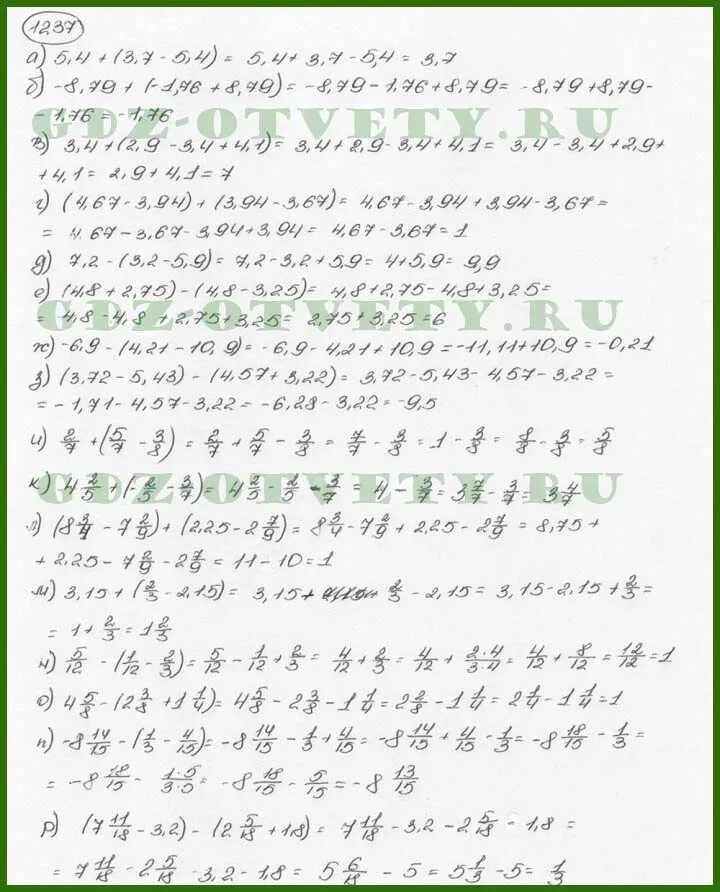 1237
а) 5,4 + (3,7 - 5,4) = 5,4 + 3,7 - 5,4 = 3,7
б) -8,79 + (-1,76 + 8,79) = -8,79 - 1,76 + 8,79 = -8,79 + 8,79 -
- 1,76 = -1,76
GDZ-OTVETY.RU
в) 3,4 + (2,9 - 3,4 + 4,1) = 3,4 + 2,9 - 3,4 + 4,1 = 3,4 - 3,4 + 2,9 +
+ 4,1 = 2,9 + 4,1 = 7
г) (4,67 - 3,94) + (3,94 - 3,67) = 4,67 - 3,94 + 3,94 - 3,67 =
= 4,67 - 3,67 - 3,94 + 3,94 = 4,67 - 3,67 = 1
д) 7,2 - (3,2 - 5,9) = 7,2 - 3,2 + 5,9 = 4 + 5,9 = 9,9
е) (4,8 + 2,75) - (4,8 - 3,25) = 4,8 + 2,75 - 4,8 + 3,25 =
GDZ-OTVETY.RU
= 4,8 - 4,8 + 2,75 + 3,25 = 2,75 + 3,25 = 6
ж) -6,9 - (4,21 - 10,9) = -6,9 - 4,21 + 10,9 = -11,11 + 10,9 = -0,21
з) (3,72 - 5,43) - (4,57 + 3,22) = 3,72 - 5,43 - 4,57 - 3,22 =
= -1,71 - 4,57 - 3,22 = -6,28 - 3,22 = -9,5
и) 2/7 + (5/7 - 3/8) = 2/7 + 5/7 - 3/8 = 7/7 - 3/8 = 1 - 3/8 = 8/8 - 3/8 = 5/8
GDZ-OTVETY.RU
к) 4 2/5 + (-2/5 - 3/7) = 4 2/5 - 2/5 - 3/7 = 4 - 3/7 = 3 7/7 - 3/7 = 3 4/7
л) (8 3/4 - 7 2/9) + (2,25 - 2 7/9) = 8 3/4 - 7 2/9 + 2,25 - 2 7/9 = 8,75 +
+ 2,25 - 7 2/9 - 2 7/9 = 11 - 10 = 1
м) 3,15 + (2/3 - 2,15) = 3,15 + 2/3 - 2,15 = 3,15 - 2,15 + 2/3 =
= 1 + 2/3 = 1 2/3
н) 5/12 - (1/12 - 2/3) = 5/12 - 1/12 + 2/3 = 4/12 + 2/3 = 4/12 + 2·4/3·4 = 4/12 + 8/12 = 12/12 = 1
о) 4 5/8 - (2 3/8 + 1 1/4) = 4 5/8 - 2 3/8 - 1 1/4 = 2 2/8 - 1 1/4 = 2 1/4 - 1 1/4 = 1
п) -8 14/15 - (1/3 - 4/15) = -8 14/15 - 1/3 + 4/15 = -8 14/15 + 4/15 - 1/3 = -8 18/15 - 1/3 =
= -8 18/15 - 1·5/3·5 = -8 18/15 - 5/15 = -8 13/15
р) (7 11/18 - 3,2) - (2 5/18 + 1,8) = 7 11/18 - 3,2 - 2 5/18 - 1,8 =
= 7 11/18 - 2 5/18 - 3,2 - 1,8 = 5 6/18 - 5 = 5 1/3 - 5 = 1/3